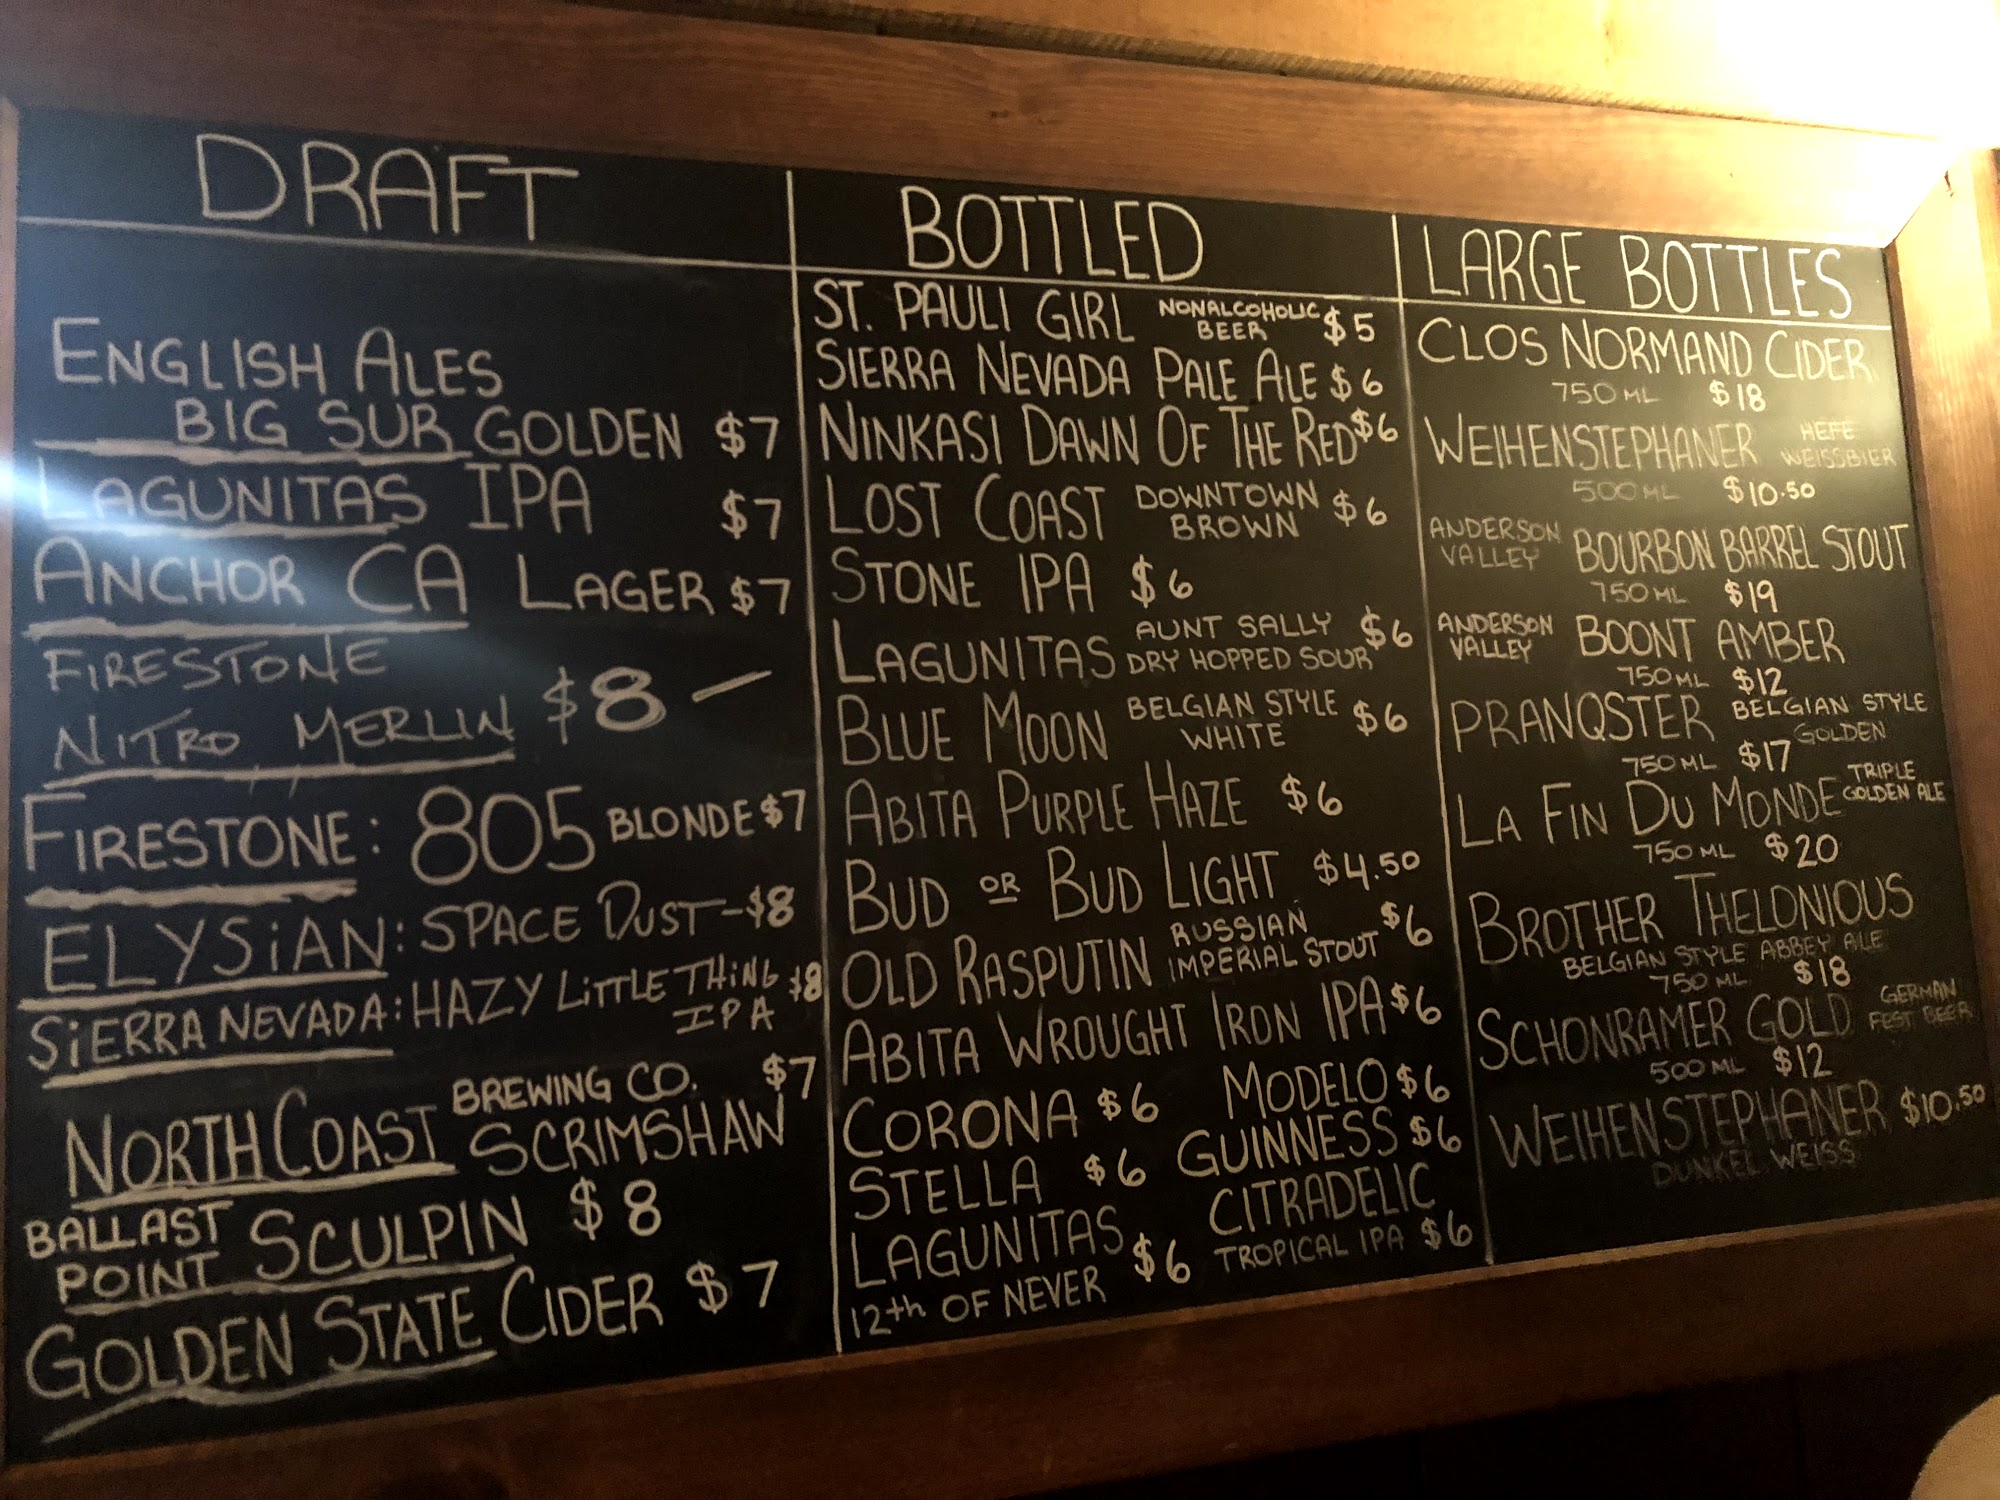 DRAFT
ENGLISH ALES
BIG SUR GOLDEN $7
LAGUNITAS IPA $7
ANCHOR CA LAGER $7
FIRESTONE
NITRO MERLIN $8 —
FIRESTONE: 805 BLONDE $7
ELYSiAN: SPACE DUST - $8
SiERRA NEVADA: HAZY LiTTLE THiNG $8
IPA
NORTH COAST BREWING CO. $7
SCRIMSHAW
BALLAST
POINT SCULPIN $8
GOLDEN STATE CIDER $7
BOTTLED
ST. PAULI GIRL NONALCOHOLIC
BEER $5
SIERRA NEVADA PALE ALE $6
NINKASI DAWN OF THE RED $6
LOST COAST DOWNTOWN
BROWN $6
STONE IPA $6
LAGUNITAS AUNT SALLY
DRY HOPPED SOUR $6
BLUE MOON BELGIAN STYLE
WHITE $6
ABITA PURPLE HAZE $6
BUD OR BUD LIGHT $4.50
OLD RASPUTIN RUSSIAN
IMPERIAL STOUT $6
ABITA WROUGHT IRON IPA $6
CORONA $6 MODELO $6
STELLA $6 GUINNESS $6
LAGUNITAS
12th OF NEVER $6
CITRADELIC
TROPICAL IPA $6
LARGE BOTTLES
CLOS NORMAND CIDER
750 ML $18
WEIHENSTEPHANER HEFE
WEISSBIER
500 ML $10.50
ANDERSON
VALLEY BOURBON BARREL STOUT
750 ML $19
ANDERSON
VALLEY BOONT AMBER
750 ML $12
PRANQSTER BELGIAN STYLE
GOLDEN
750 ML $17
LA FIN DU MONDE TRIPLE
GOLDEN ALE
750 ML $20
BROTHER THELONIOUS
BELGIAN STYLE ABBEY ALE
750 ML $18
SCHONRAMER GOLD GERMAN
FEST BEER
500 ML $12
WEIHENSTEPHANER $10.50
DUNKEL WEISS